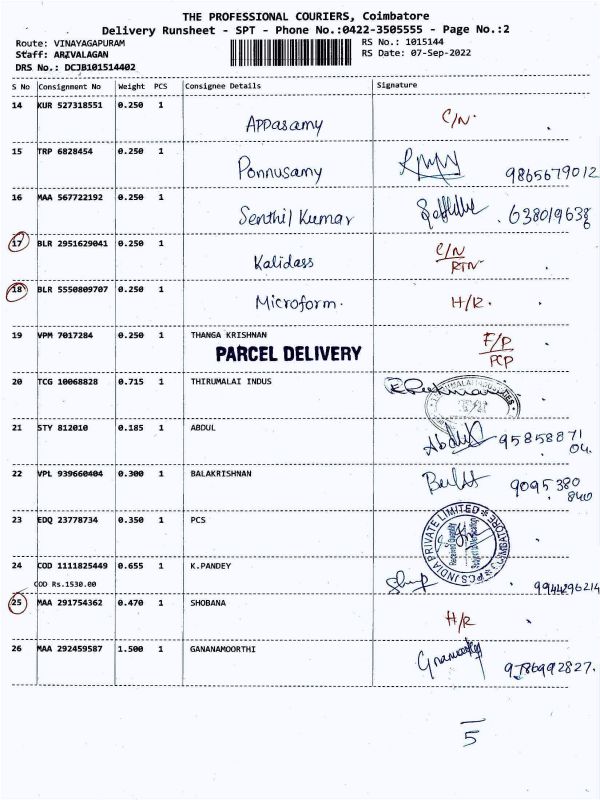 THE PROFESSIONAL COURIERS, Coimbatore
Delivery Runsheet - SPT - Phone No.:0422-3505555 - Page No.:2
Route: VINAYAGAPURAM RS No.: 1015144
Staff: ARIVALAGAN RS Date: 07-Sep-2022
DRS No.: DCJB101514402
S No Consignment No Weight PCS Consignee Details Signature
14 KUR 527318551 0.250 1 Appasamy C/N.
15 TRP 6828454 0.250 1 Ponnusamy 9865679012
16 MAA 567722192 0.250 1 Senthil Kumar 6380196386
17 BLR 2951629041 0.250 1 Kalidass C/N
RTN
18 BLR 5550809707 0.250 1 Microform. H/R.
19 VPM 7017284 0.250 1 THANGA KRISHNAN F/P
PARCEL DELIVERY PCP
20 TCG 10068828 0.715 1 THIRUMALAI INDUS
21 STY 812010 0.185 1 ABDUL Abdul 9585887104.
22 VPL 939660404 0.300 1 BALAKRISHNAN 9095380840
23 EDQ 23778734 0.350 1 PCS PCS INDIA PRIVATE LIMITED
24 COD 1111825449 0.655 1 K.PANDEY
COD Rs.1530.00 9944296214
25 MAA 291754362 0.470 1 SHOBANA H/R
26 MAA 292459587 1.500 1 GANANAMOORTHI 9786992827.
5